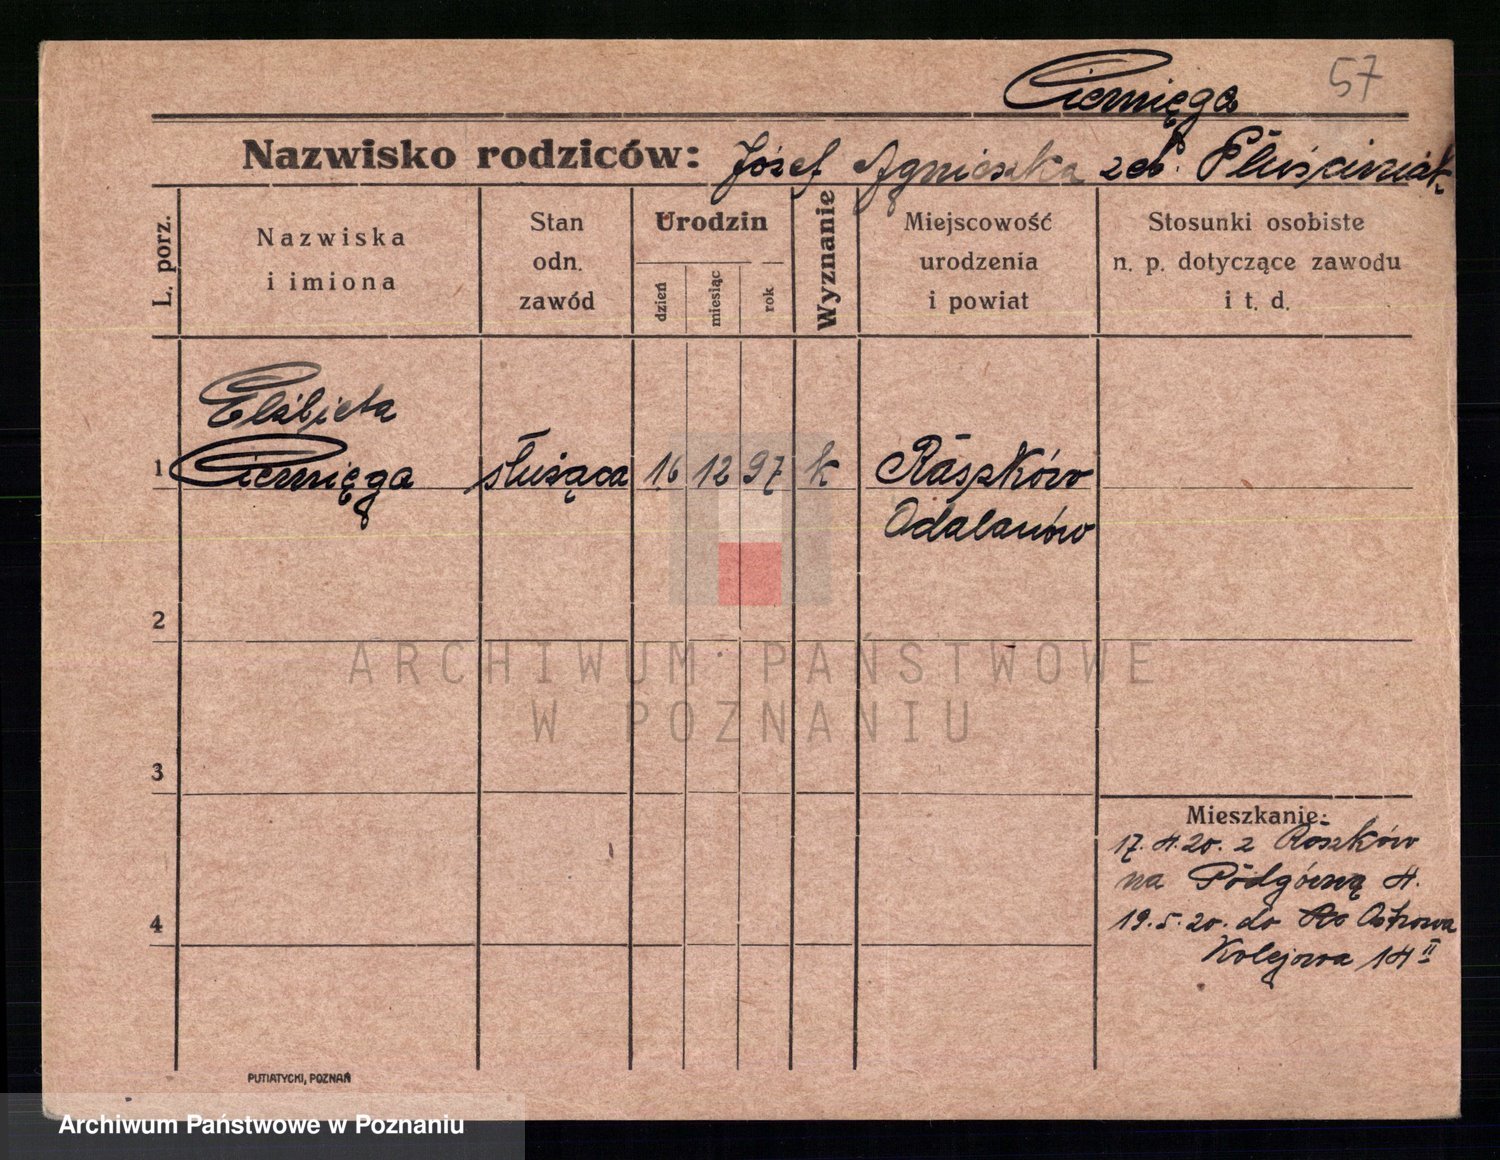 57
Ciernięga
Nazwisko rodziców: Józef Agnieszka
L. porz.
Nazwiska i imiona
Stan odn. zawód
Urodzin
dzień miesiąc rok
Wyznanie
Miejscowość urodzenia i powiat
Stosunki osobiste n. p. dotyczące zawodu i t. d.
Elżbieta
1 Ciernięga służąca 16 12 97 k Raszków
Odalanów
2
ARCHIWUM PAŃSTWOWE
W POZNANIU
3
Mieszkanie:
17. 4. 20. z Raszków
na Podgórną 4.
4
19. 5. 20. do Ostrowa
Kolejowa 14 II
PUTIATYCKI, POZNAŃ
Archiwum Państwowe w Poznaniu